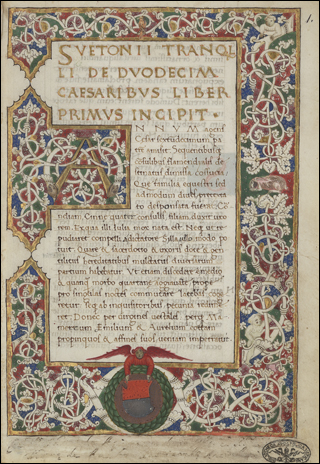 1.
SVETONII TRANQL
LI DE DVODECIM
CAESARIBVS LIBER
PRIMVS INCIPIT.
A NNVM agens
Cesar sextumdecimum pa
trem amisit. Sequentibusq
cōsulibus flamen dialis de
stinatus dimissa cossutia
Que familia equestri sed
admodum diues pretexta
to desponsata fuerat. Co
neliam, Cinne quater consulis filiam duxit uxo
rem. Ex qua illi Iulia mox nata est. Neq ut re
pudiaret compelli a dictatore Sylla ullo modo po
tuit. Quare & sacerdotio & uxoris dote & gen
tiliciis hereditatibus multatus diuersarum
partium habebatur. Vt etiam discedere e medio
& quamq morbo quartane aggrauante prope
per singulas noctes commutare latebras coge
retur. Seq ab inquisitoribus pecunia redime
ret. Donec per uirgines uestales perq Ma
mercum Emilium & Aurelium cottam
propinquos & affines suos ueniam impetrauit